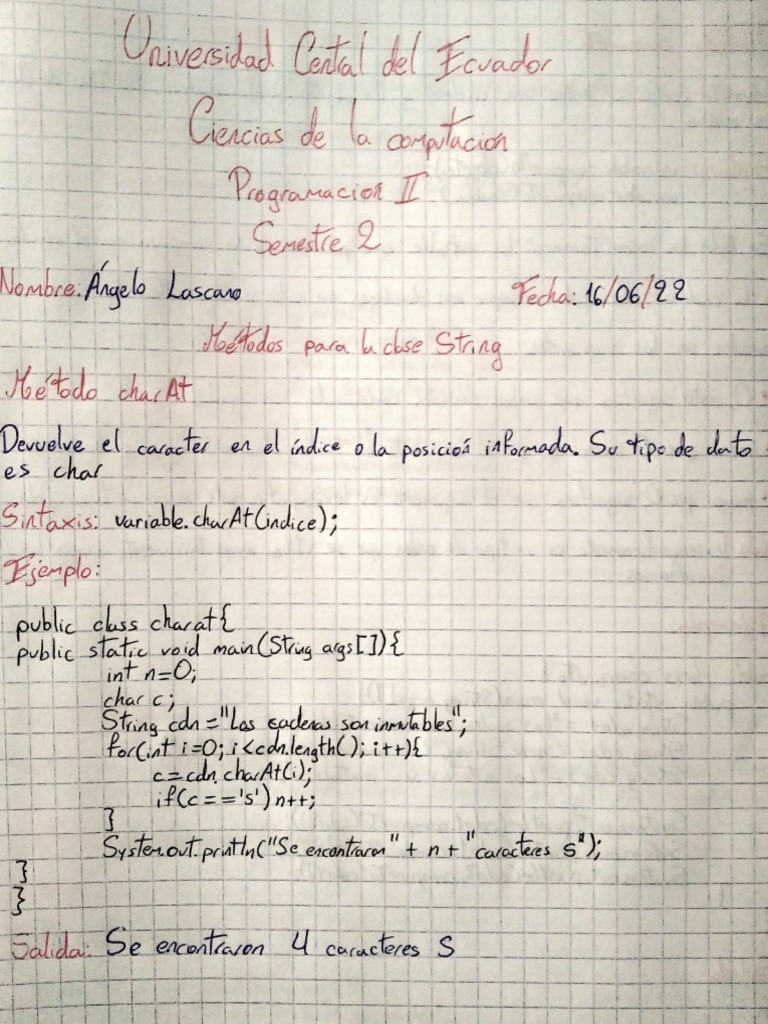 Universidad Central del Ecuador
Ciencias de la computación
Programación II
Semestre 2
Nombre: Ángelo Lascano Fecha: 16/06/22
Métodos para la clase String
Método charAt
Devuelve el caracter en el índice o la posición informada. Su tipo de dato
es char
Sintaxis: variable.charAt(indice);
Ejemplo:
public class charat{
public static void main(String args[]){
int n=0;
char c;
String cdn="Las cadenas son inmutables";
for(int i=0; i<cdn.length(); i++){
c=cdn.charAt(i);
if(c=='s')n++;
}
System.out.println("Se encontraron" + n + "caracteres s");
}
}
Salida: Se encontraron 4 caracteres s